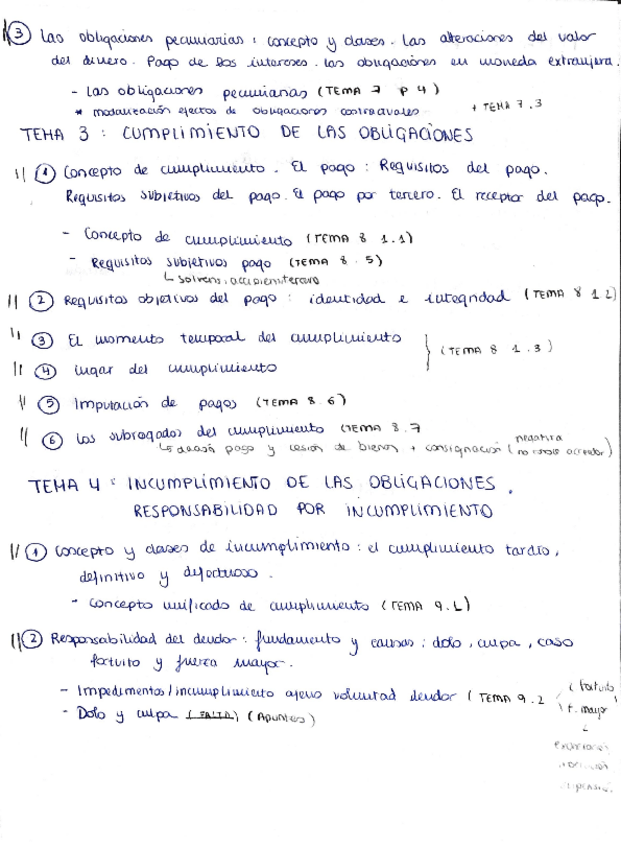 ③ Las obligaciones pecuniarias : concepto y clases. Las alteraciones del valor
del dinero. Pago de los intereses. Las obligaciones en moneda extranjera.
- Las obligaciones pecuniarias (TEMA 7 P 4)
* modalización efectos de obligaciones contractuales + TEMA 7.3
TEMA 3 : CUMPLIMIENTO DE LAS OBLIGACIONES
① Concepto de cumplimiento. El pago : Requisitos del pago.
Requisitos subjetivos del pago. El pago por tercero. El receptor del pago.
- Concepto de cumplimiento (TEMA 8 1.1)
- Requisitos subjetivos pago (TEMA 8. 5)
↳ solvens, accipiens, tercero
② Requisitos objetivos del pago : identidad e integridad (TEMA 8 1.2)
③ El momento temporal del cumplimiento
④ Lugar del cumplimiento } (TEMA 8 1.3)
⑤ Imputación de pagos (TEMA 8. 6)
⑥ Los subrogados del cumplimiento (TEMA 8.7
↳ dación pago y cesión de bienes + consignación ( negativa
no acreedor)
TEMA 4 : INCUMPLIMIENTO DE LAS OBLIGACIONES.
RESPONSABILIDAD POR INCUMPLIMIENTO
① Concepto y clases de incumplimiento : el cumplimiento tardío,
definitivo y defectuoso.
- Concepto unificado de cumplimiento (TEMA 9.1)
② Responsabilidad del deudor : fundamento y causas : dolo, culpa, caso
fortuito y fuerza mayor.
- Impedimentos/incumplimiento ajeno voluntad deudor (TEMA 9.2 ( fortuito
f. mayor
- Dolo y culpa (FALTA) (Apuntes)